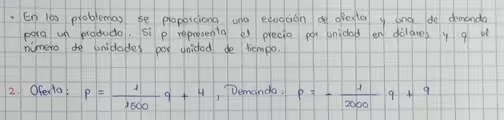 • En los problemas se proporciona una ecuación de oferta y una de demanda
para un producto. Si p representa el precio por unidad en dólares y q el
número de unidades por unidad de tiempo.
2. Oferta: p = 1/1500 q + 4, Demanda: p = - 1/2000 q + 9